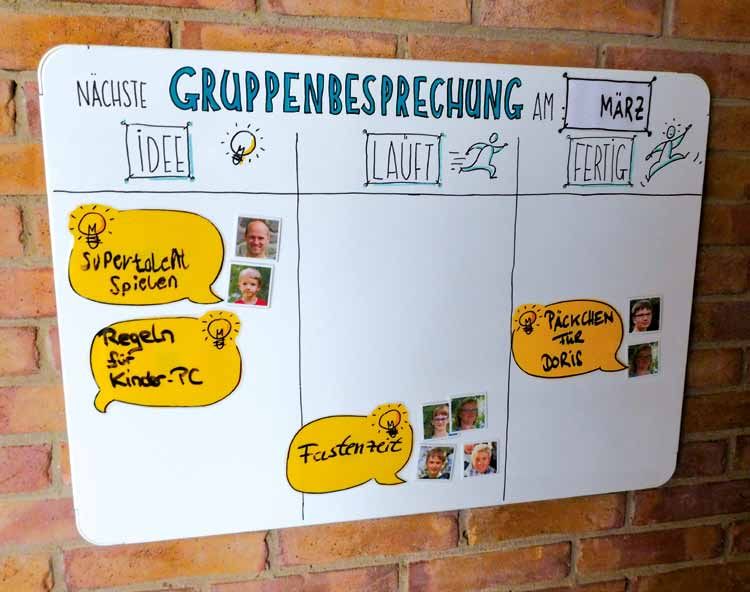 NÄCHSTE GRUPPENBESPRECHUNG AM: MÄRZ
IDEE
LÄUFT
FERTIG
Supertalent
Spielen
Regeln
für
Kinder-PC
Fastenzeit
PÄCKCHEN
FÜR
DORIS